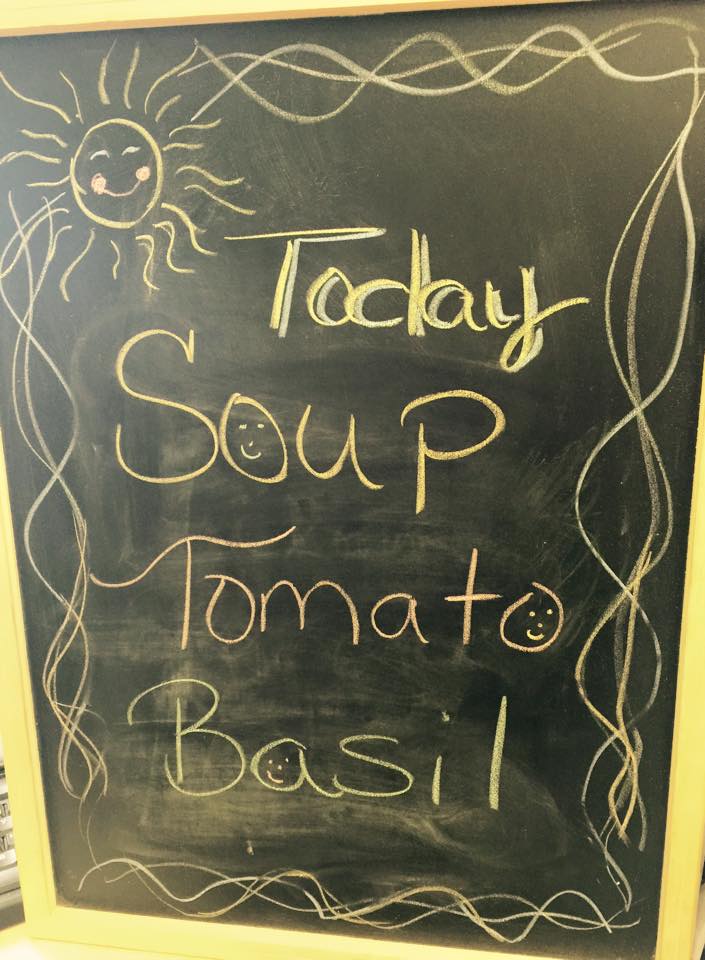 Today
Soup
Tomato
Basil